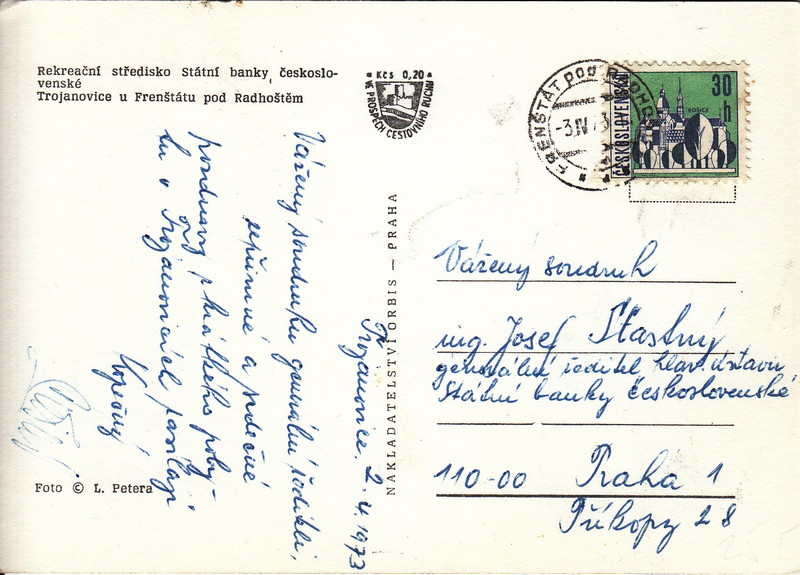 Rekreační středisko Státní banky českoslo-
venské
Trojanovice u Frenštátu pod Radhoštěm
Kčs 0,20
VE PROSPĚCH CESTOVNÍHO RUCHU
FRENŠTÁT pod RADHOŠTĚM
-3.IV.73
ČESKOSLOVENSKO
KOŠICE
30 h
Trojanovice, 2.4.1973
Vážený soudruhu generální řediteli,
upřímné a srdečné
pozdravy z krátkého poby-
tu v Trojanovicích zasílají
NAKLADATELSTVÍ ORBIS — PRAHA
Foto © L. Petera
Vážený soudruh
ing. Josef Šťastný
generální ředitel hlav. ústavu
Státní banky československé
110-00 Praha 1
Příkopy 28